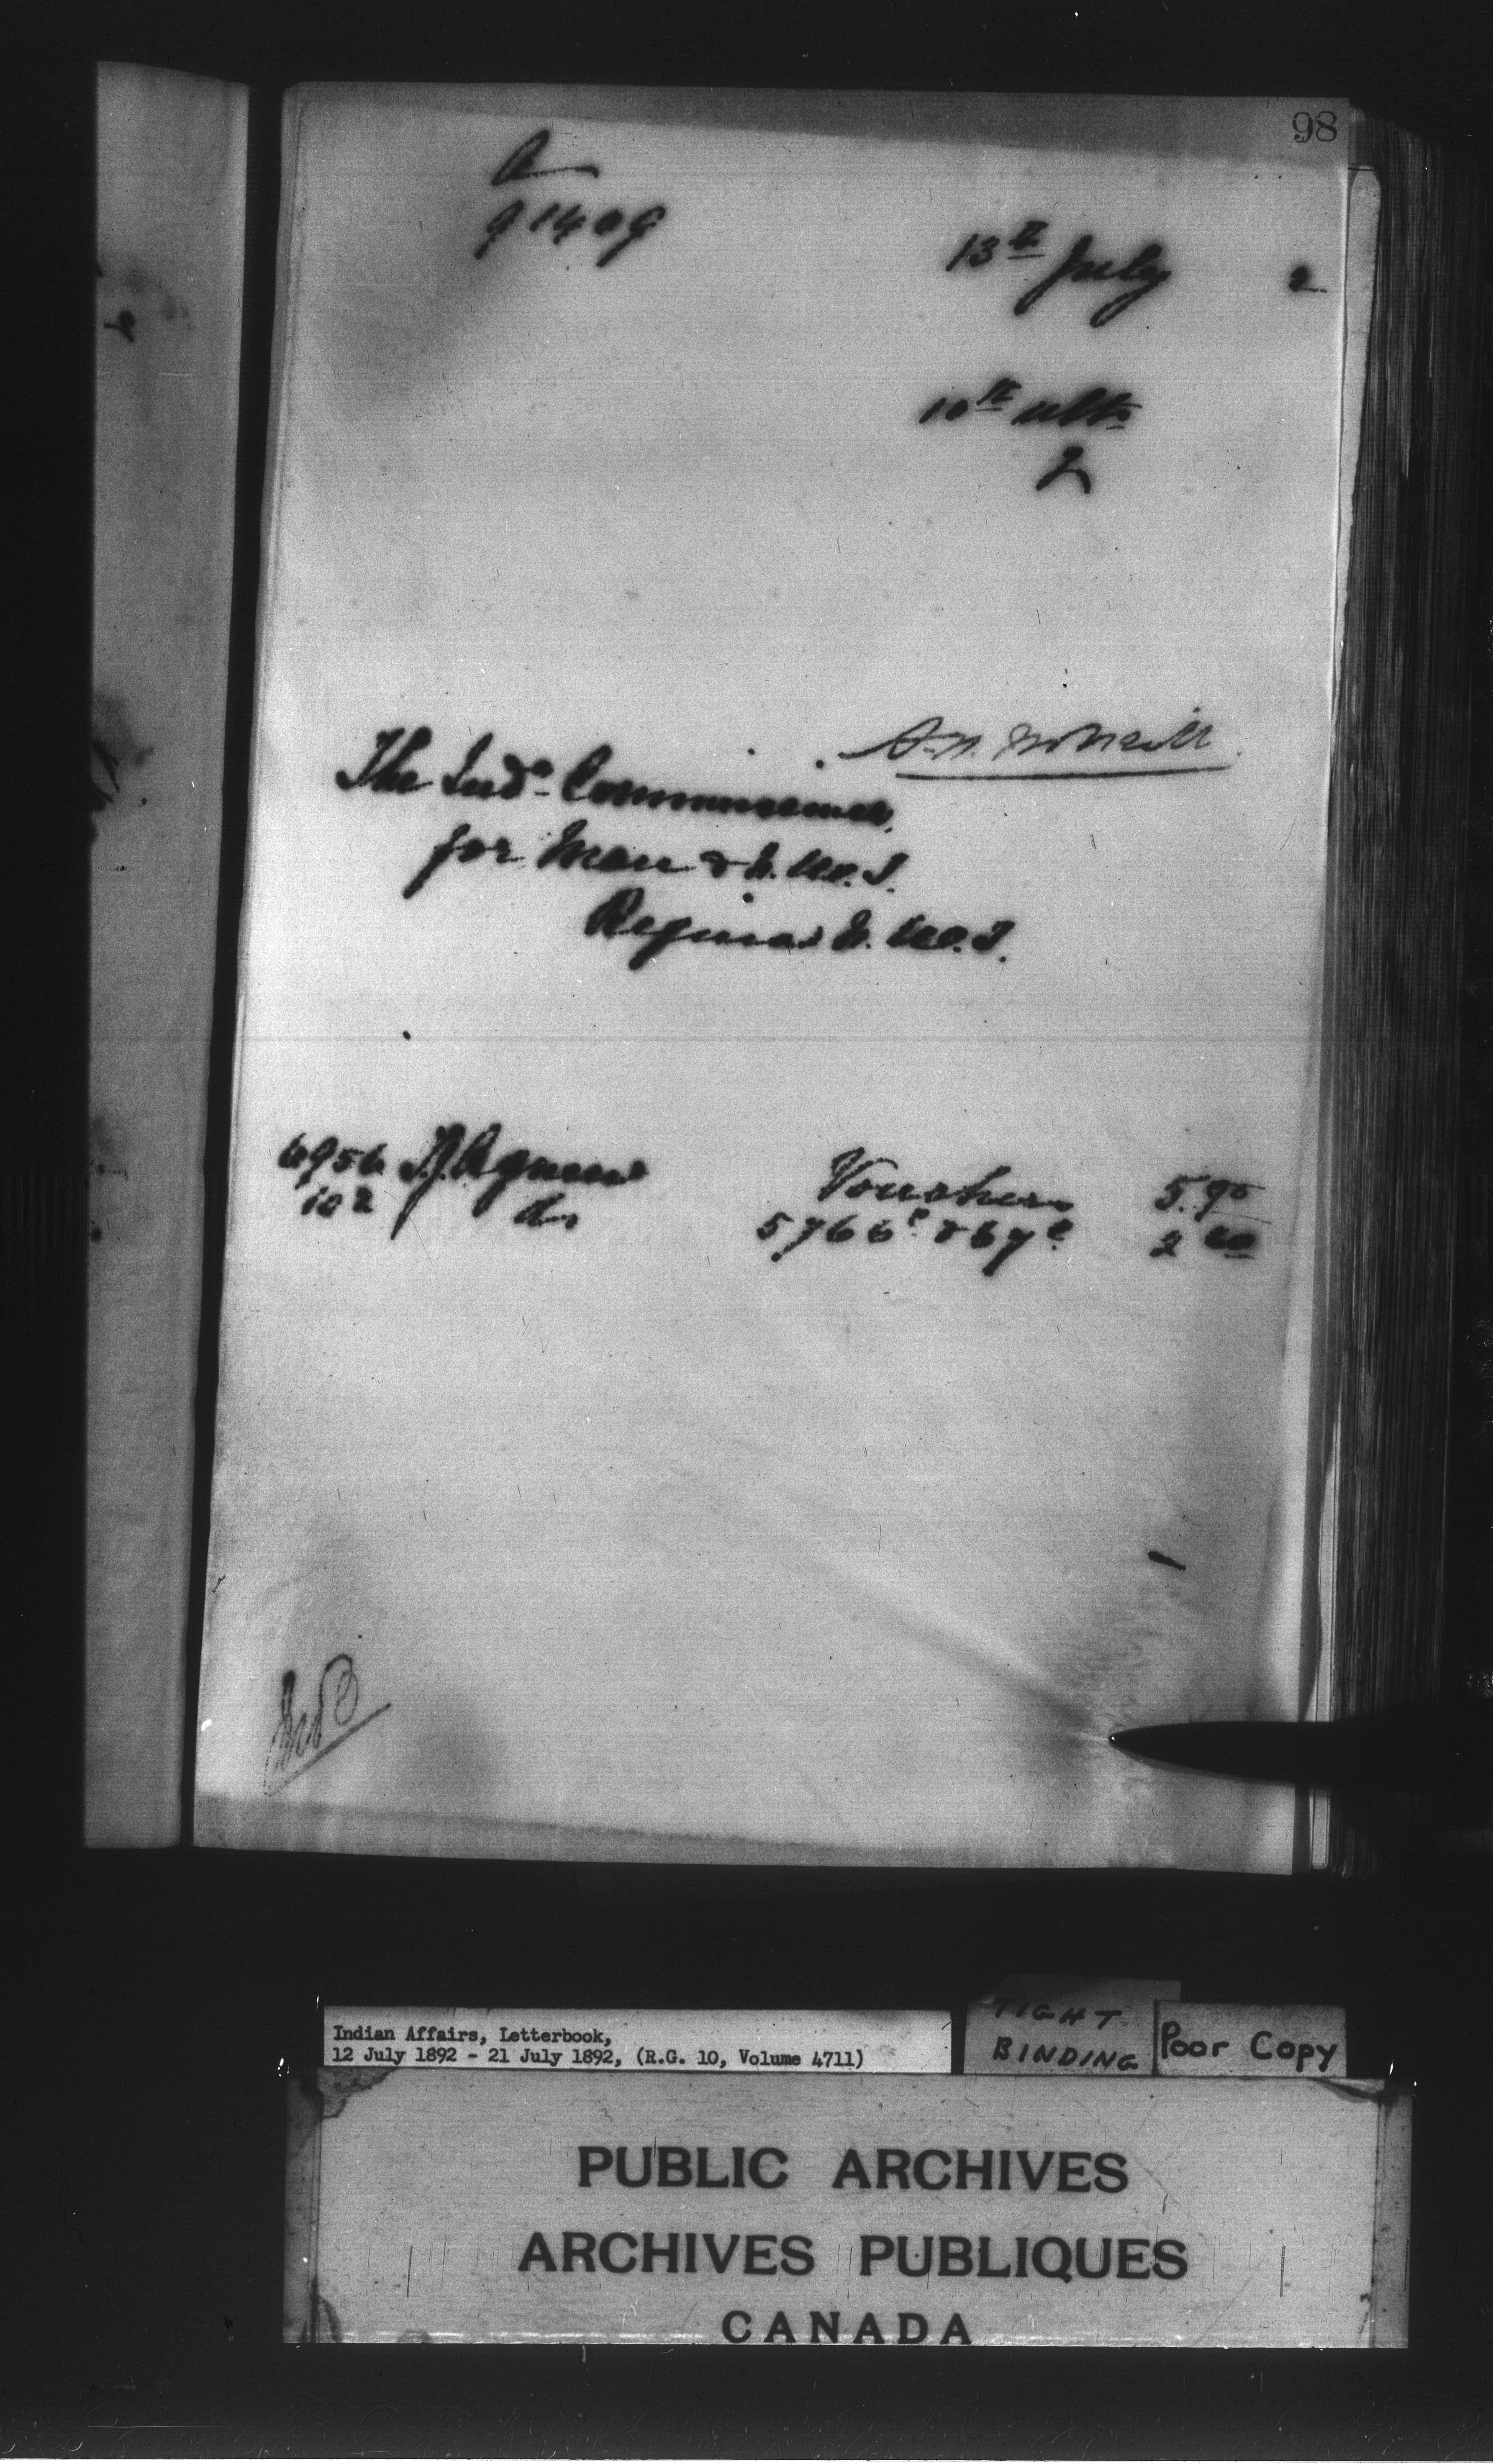 98
A
91409
13th July 2
10th ulto
2
A.N. McNeill
The Indn Commissioner,
for Man & N.W.T.
Regina N.W.T.
6956 T.J. Agnew Vouchers 5.90
102 do 5766 & 67 2
Indian Affairs, Letterbook,
12 July 1892 - 21 July 1892, (R.G. 10, Volume 4711)
TIGHT
BINDING
Poor Copy
PUBLIC ARCHIVES
ARCHIVES PUBLIQUES
CANADA